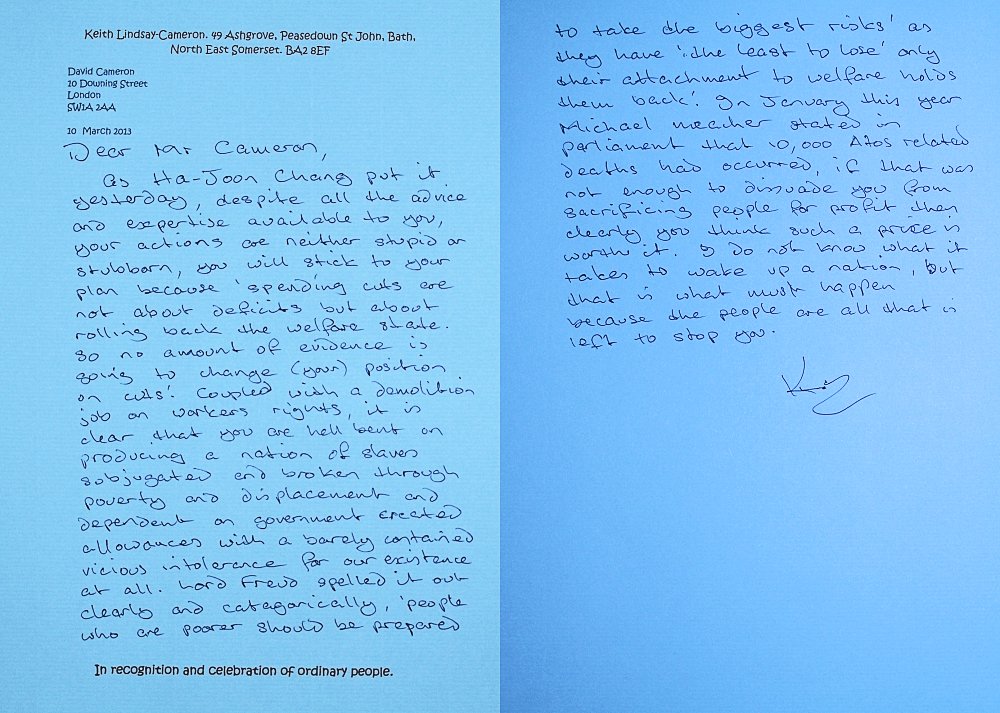 Keith Lindsay-Cameron. 49 Ashgrove, Peasedown St John, Bath,
North East Somerset. BA2 8EF
David Cameron
10 Downing Street
London
SW1A 2AA
10 March 2013
Dear Mr Cameron,
as Ha-Joon Chang put it
yesterday, despite all the advice
and expertise available to you,
your actions are neither stupid or
stubborn, you will stick to your
plan because 'spending cuts are
not about deficits but about
rolling back the welfare state.
So no amount of evidence is
going to change (your) position
on cuts'. Coupled with a demolition
job on workers rights, it is
clear that you are hell bent on
producing a nation of slaves
subjugated and broken through
poverty and displacement and
dependent on government created
allowances with a barely contained
vicious intolerance for our existence
at all. Lord Freud spelled it out
clearly and categorically, 'people
who are poorer should be prepared
In recognition and celebration of ordinary people.
to take the biggest risks' as
they have 'the least to lose' only
their attachment to welfare holds
them back'. In January this year
Michael Meacher stated in
parliament that 10,000 Atos related
deaths had occurred, if that was
not enough to dissuade you from
sacrificing people for profit then
clearly you think such a price is
worth it. I do not know what it
takes to wake up a nation, but
that is what must happen
because the people are all that is
left to stop you.